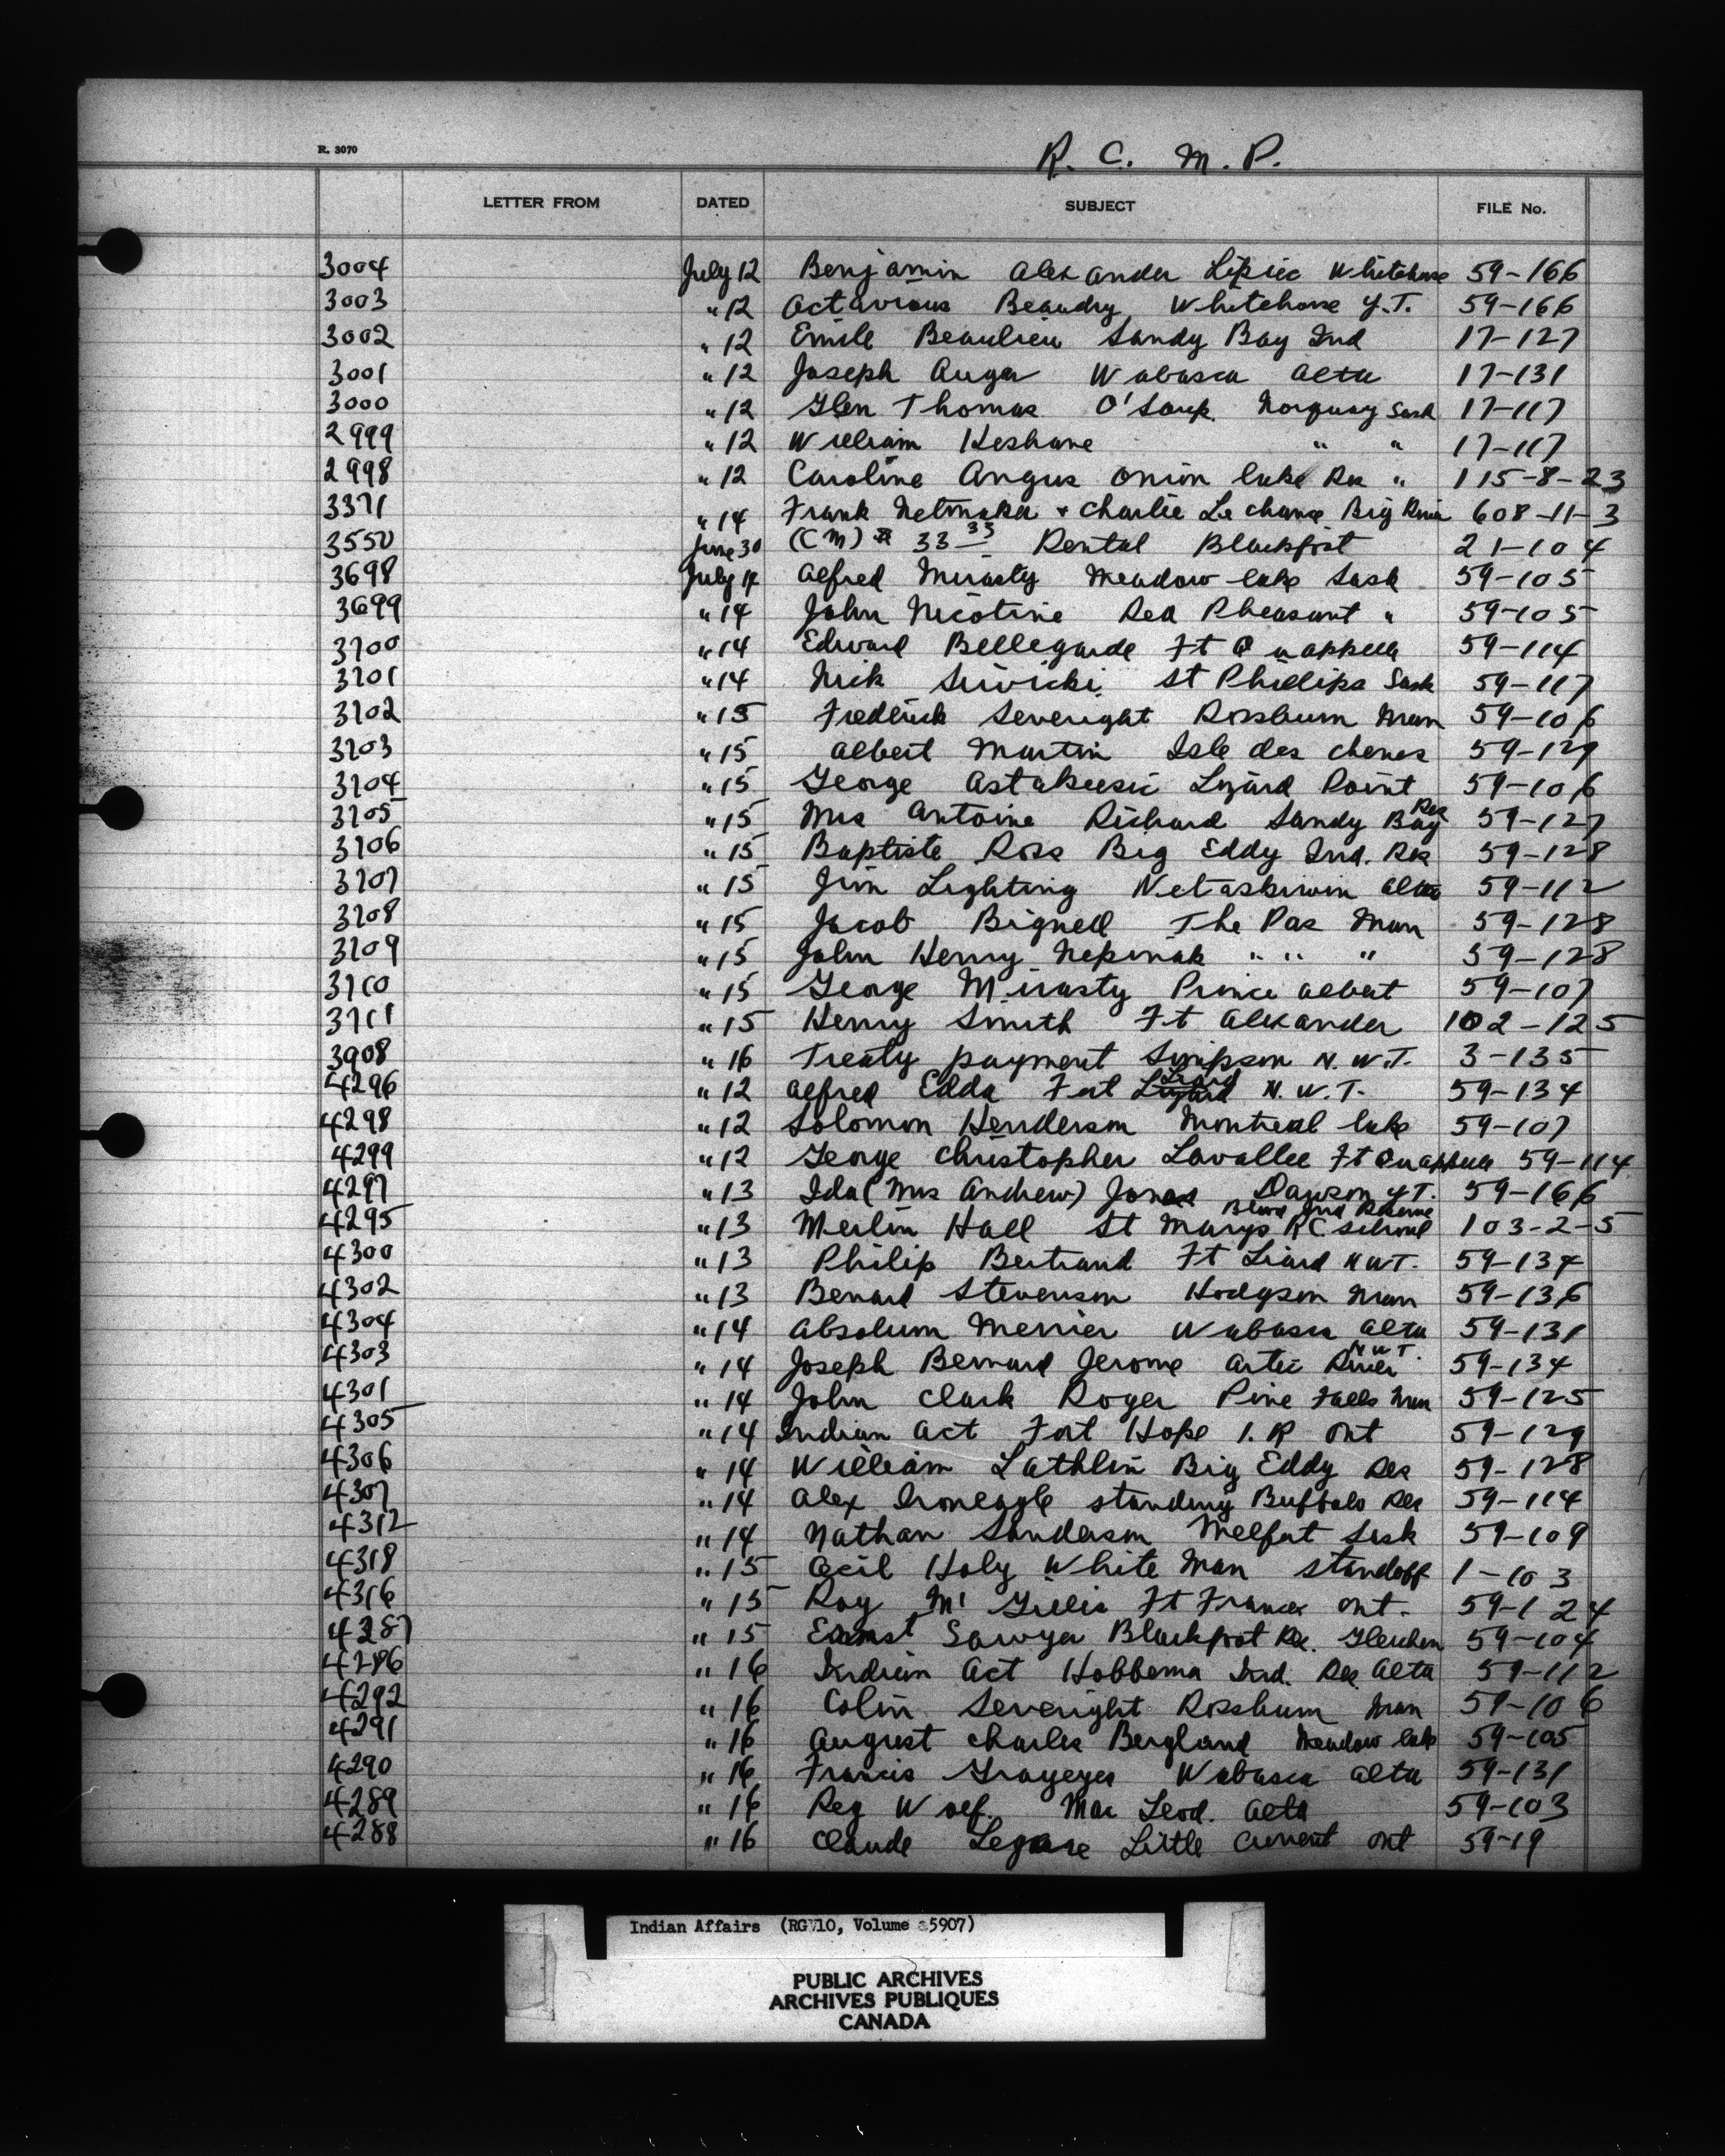 R. 3070
R. C. M. P.
LETTER FROM DATED SUBJECT FILE No.
3004 July 12 Benjamin Alexander Whitehorse 59-166
3003 " 12 Octavious Beaudry Whitehorse Y.T. 59-166
3002 " 12 Emile Beaulieu Sandy Bay Ind 17-127
3001 " 12 Joseph Auger Wabasca Alta 17-131
3000 " 12 Glen Thomas O'Soup. Norquay Sask 17-117
2999 " 12 William Keshane " " 17-117
2998 " 12 Caroline Angus Onion lake Res " 115-8-23
3371 " 14 Frank Netmaker + Charlie Le chance Big River 608-11-3
3550 June 30 (CM) 33 33 Rental Blackfoot 21-104
3698 July 14 Alfred Mirasty Meadow lake Sask 59-105
3699 " 14 John Nicotine Red Pheasant " 59-105
3700 " 14 Edward Bellegarde Ft Quappelle 59-114
3701 " 14 Nick St Phillips Sask 59-117
3702 " 15 Fredlick Severight Rossburn Man 59-106
3703 " 15 Albert Martin Isle des chenes 59-129
3704 " 15 George Astakeesic Lizard Point 59-106
3705 " 15 Mrs Antoine Richard Sandy Bay Res 59-127
3706 " 15 Baptiste Ross Big Eddy Ind. Res 59-128
3707 " 15 Jim Lighting Wetaskiwin Alta 59-112
3708 " 15 Jacob Bignell The Pas Man 59-128
3709 " 15 John Henry Nepinak " " " 59-128
3710 " 15 George Mirasty Prince Albert 59-107
3711 " 15 Henry Smith Ft Alexander 102-125
3908 " 16 Treaty payment Simpson N.W.T. 3-135
4296 " 12 Alfred Edda Fort Liard N.W.T. 59-134
4298 " 12 Solomon Henderson Montreal lake 59-107
4299 " 12 George Christopher Lavallee Ft Quappelle 59-114
4297 " 13 Ida (Mrs Andrew) Jonas Dawson Y.T. 59-166
4295 " 13 Merlin Hall St Marys R.C. School Blood Ind Reserve 103-2-5
4300 " 13 Philip Bertrand Ft Liard N W T. 59-134
4302 " 13 Benard Stevenson Hodgson Man 59-136
4304 " 14 Absolum Merrier Wabasca Alta 59-131
4303 " 14 Joseph Bernard Jerome Artic River N W T. 59-134
4301 " 14 John Clark Roger Pine Falls Man 59-125
4305 " 14 Indian Act Fort Hope I. R Ont 59-129
4306 " 14 William Lathlin Big Eddy Res 59-128
4307 " 14 Alex Ironeagle standing Buffalo Res 59-114
4312 " 14 Nathan Sanderson Melfort Sask 59-109
4318 " 15 Cecil Holy White Man Standoff 1-103
4316 " 15 Roy Mc Gillis Ft Frances Ont. 59-124
4287 " 15 Earnst Sawyer Blackfoot Res. Gleichen 59-104
4286 " 16 Indian Act Hobbema Ind. Res Alta 59-112
4292 " 16 Colin Severight Rossburn Man 59-106
4291 " 16 August Charles Bergland Meadow lake 59-105
4290 " 16 Francis Grayeyes Wabasca Alta 59-131
4289 " 16 Reg Wolf. Mac Leod. Alta 59-103
4288 " 16 Claude Legare Little Current Ont 59-19
Indian Affairs (RG 10, Volume 5907)
PUBLIC ARCHIVES
ARCHIVES PUBLIQUES
CANADA